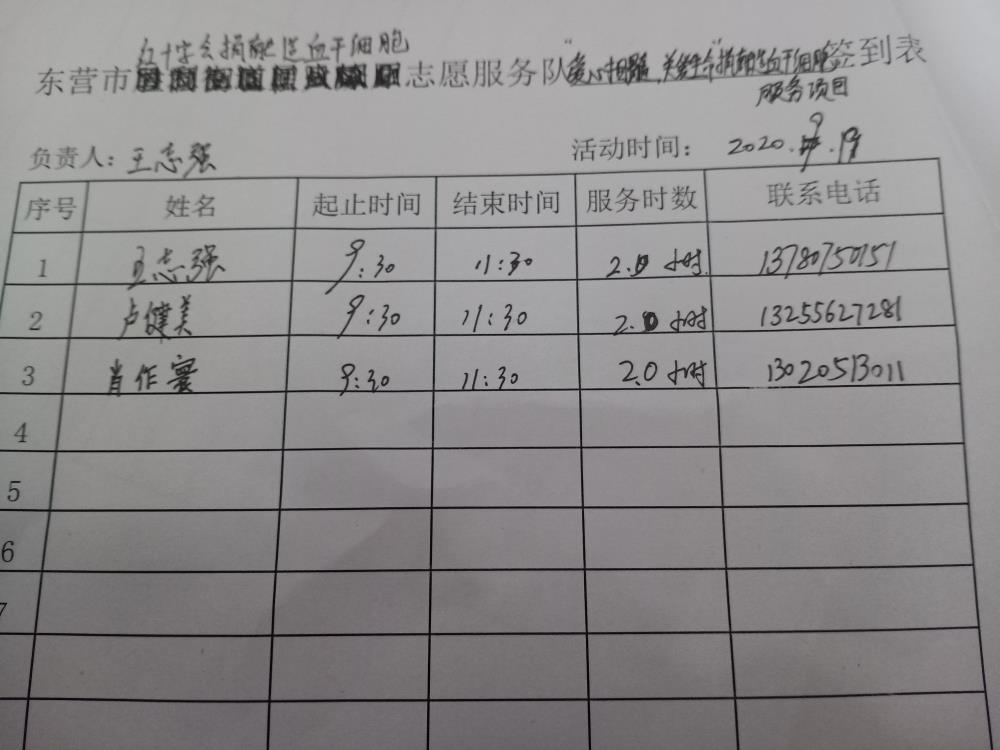 红十字会捐献造血干细胞
东营市志愿服务队"爱心相髓、关爱生命"捐献造血干细胞签到表
服务项目
负责人：王志强 活动时间： 2020.9.19
序号 姓名 起止时间 结束时间 服务时数 联系电话
1 王志强 9:30 11:30 2.0小时 13780750151
2 卢健美 9:30 11:30 2.0小时 13255627281
3 肖作 9:30 11:30 2.0小时 13020513011
4
5
6
7